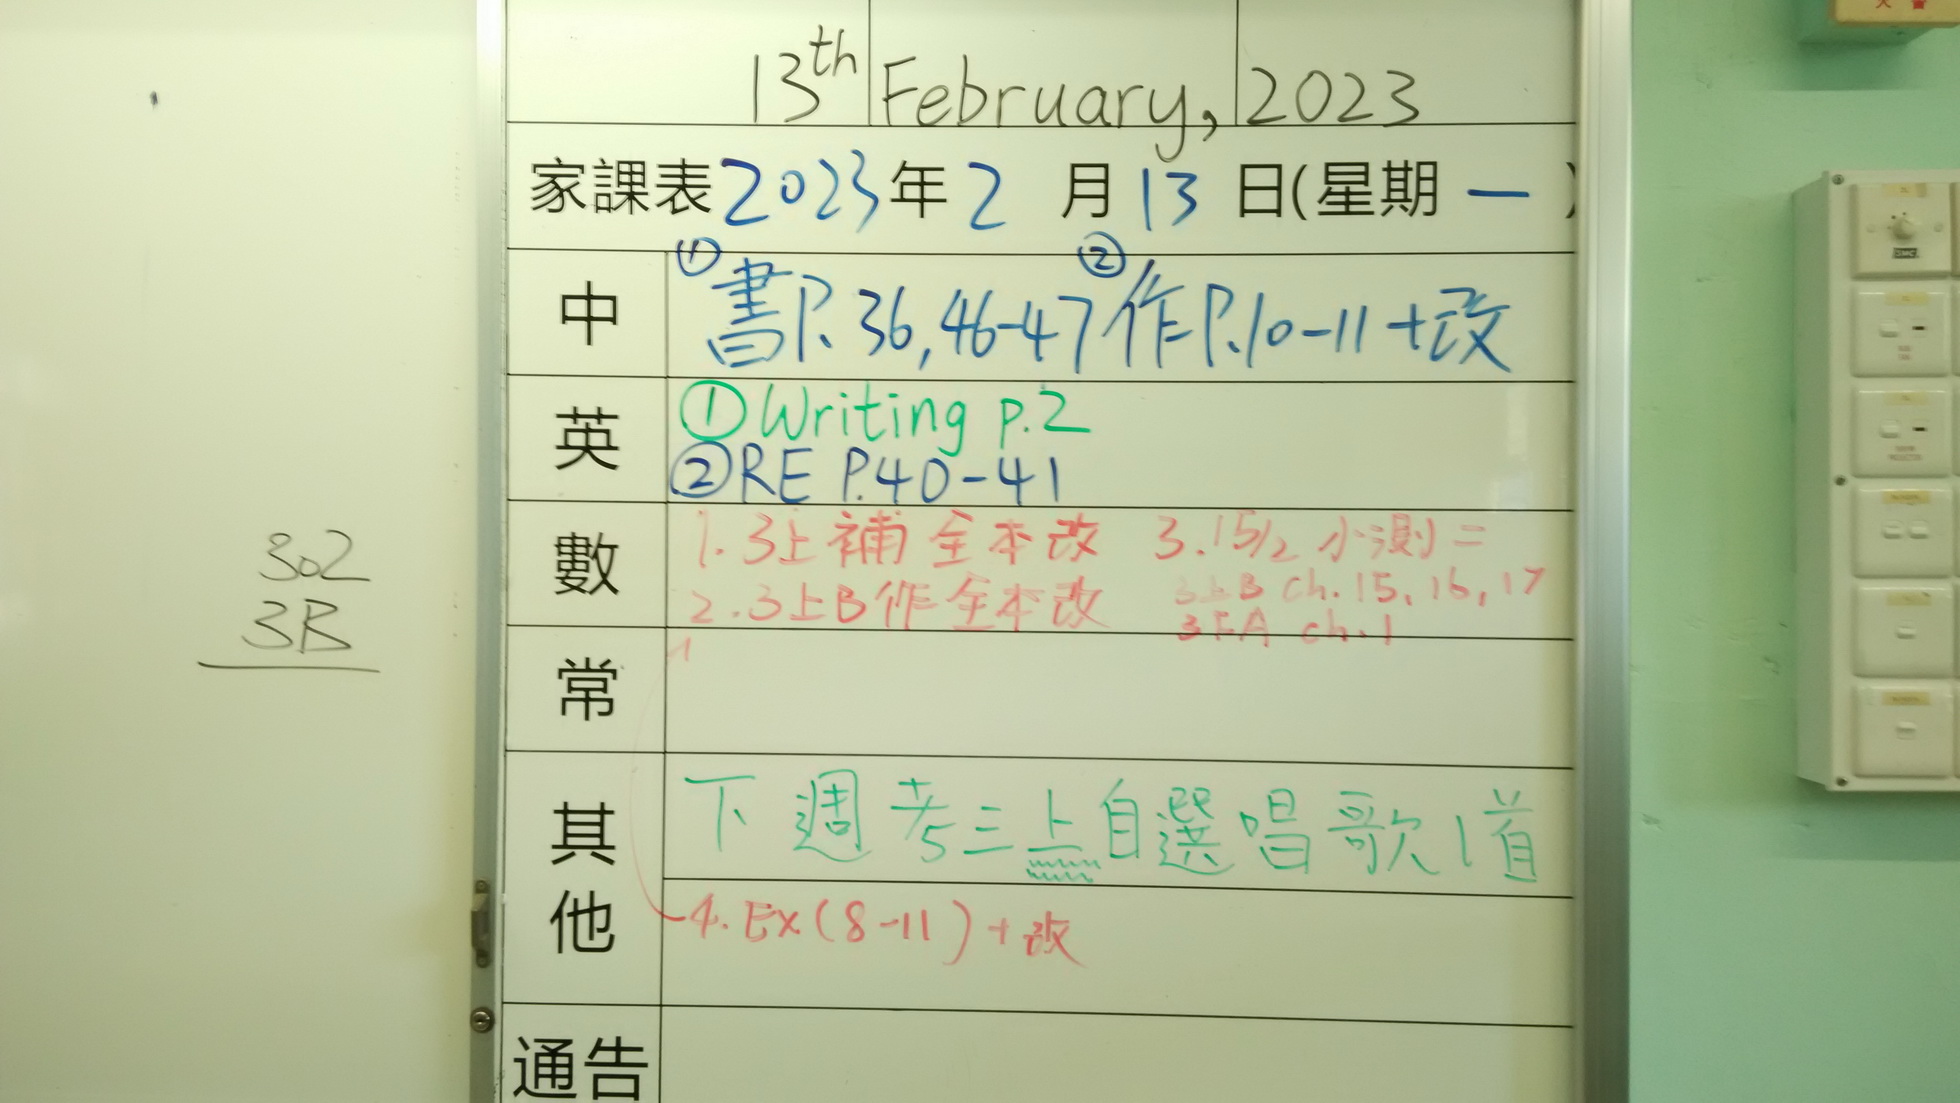 13th February, 2023
家課表 2023年 2 月 13 日(星期 一 )
中 ①書P.36,46-47 ②作P.10-11+改
英 ①Writing p.2
②RE P.40-41
數 1.3上補全本改 3.15/2小測二
2.3上B作全本改 3上B Ch.15,16,17
3下A ch.1
常
其他 下週考三上自選唱歌1首
4.Ex(8-11)+改
通告
302
3B